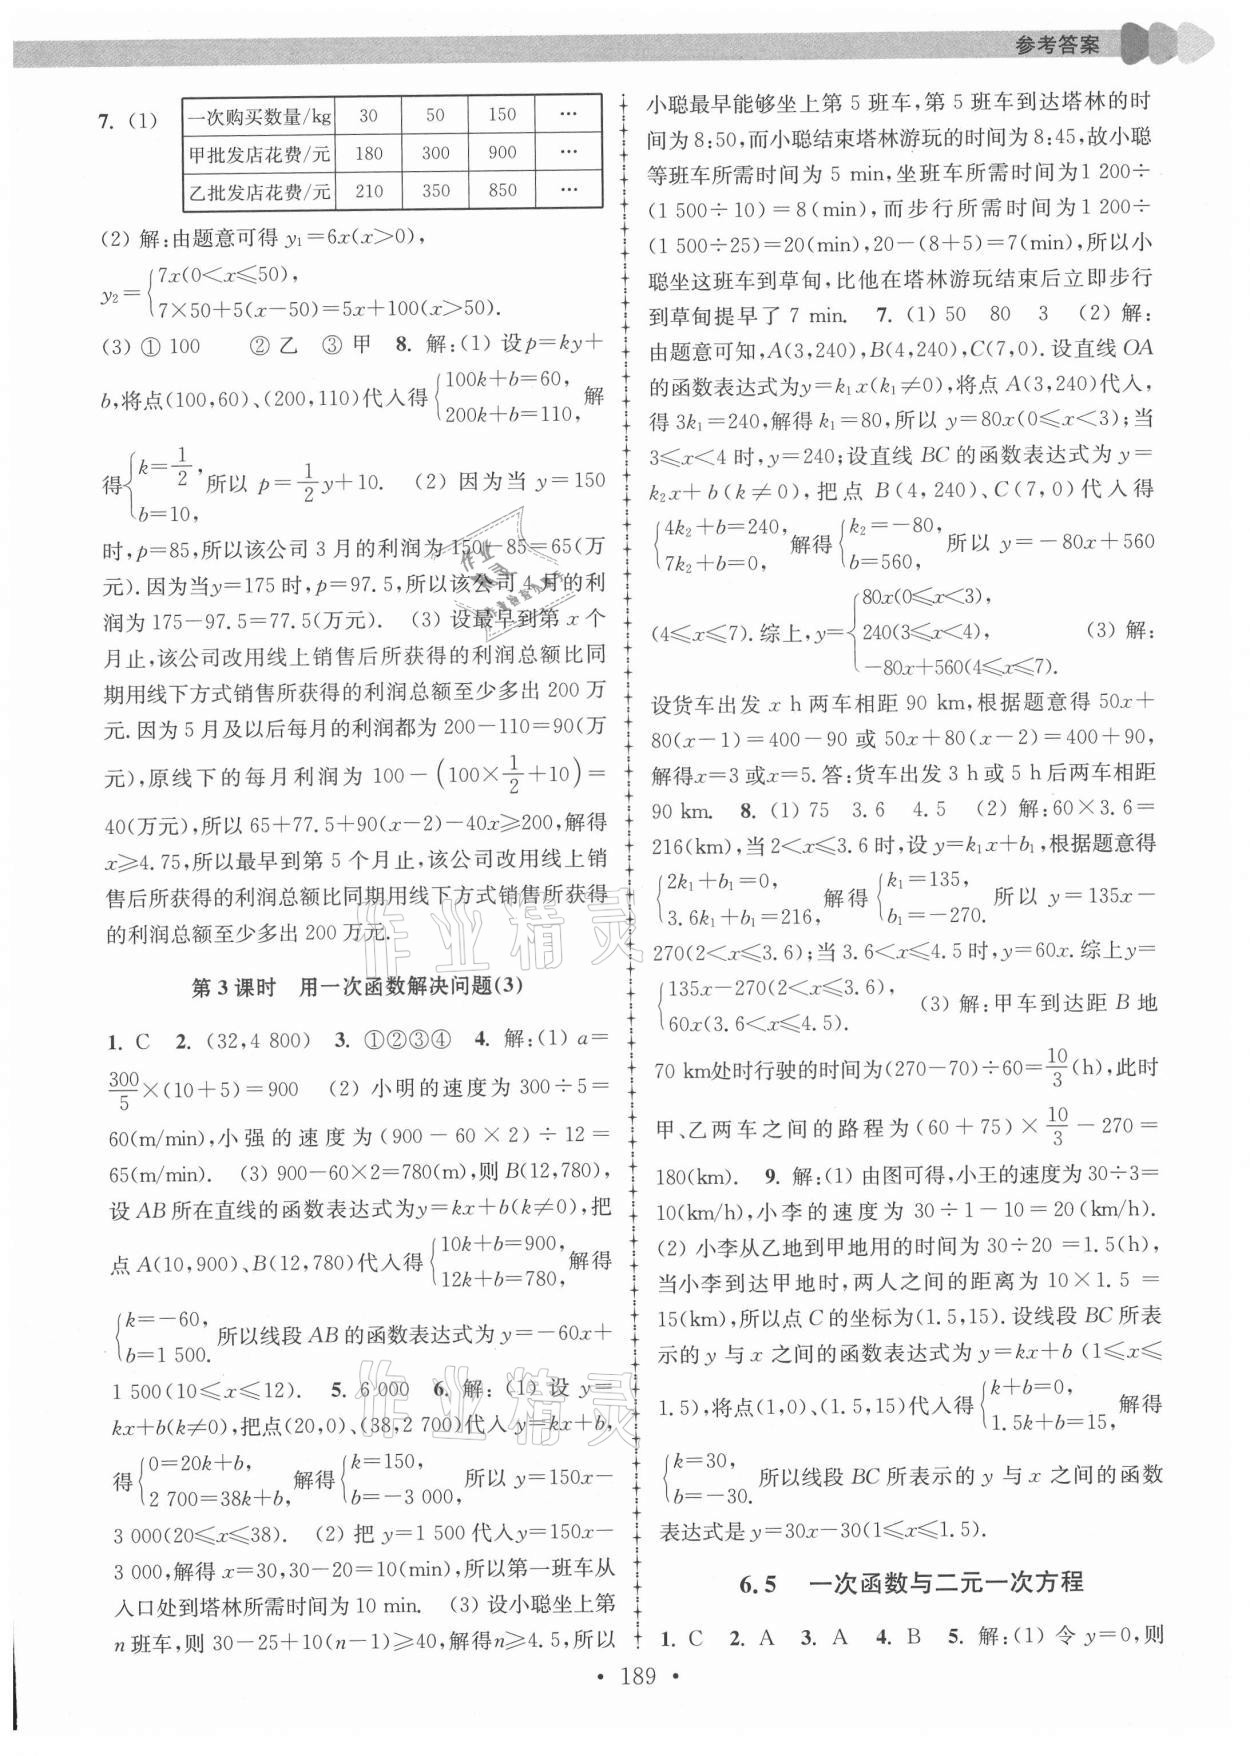 参考答案
7. (1)
一次购买数量/kg 30 50 150 …
甲批发店花费/元 180 300 900 …
乙批发店花费/元 210 350 850 …
(2) 解:由题意可得 y₁=6x(x>0),
y₂={7x(0<x≤50),
7×50+5(x-50)=5x+100(x>50).
(3) ① 100 ② 乙 ③ 甲 8. 解:(1) 设p=ky+
b,将点(100,60)、(200,110)代入得{100k+b=60, 200k+b=110, 解
得{k=1/2, b=10, 所以 p=1/2y+10. (2) 因为当 y=150
时,p=85,所以该公司 3 月的利润为 150-85=65(万
元).因为当y=175 时,p=97.5,所以该公司 4 月的利
润为 175-97.5=77.5(万元). (3) 设最早到第 x 个
月止,该公司改用线上销售后所获得的利润总额比同
期用线下方式销售所获得的利润总额至少多出 200 万
元.因为 5 月及以后每月的利润都为 200-110=90(万
元),原线下的每月利润为 100-(100×1/2+10)=
40(万元),所以 65+77.5+90(x-2)-40x≥200,解得
x≥4.75,所以最早到第 5 个月止,该公司改用线上销
售后所获得的利润总额比同期用线下方式销售所获得
的利润总额至少多出 200 万元.
第 3 课时 用一次函数解决问题(3)
1. C 2. (32,4 800) 3. ①②③④ 4. 解:(1) a=
300/5×(10+5)=900 (2) 小明的速度为 300÷5=
60(m/min),小强的速度为(900-60×2)÷12=
65(m/min). (3) 900-60×2=780(m),则B(12,780),
设 AB 所在直线的函数表达式为y=kx+b(k≠0),把
点A(10,900)、B(12,780)代入得{10k+b=900, 12k+b=780, 解得
{k=-60, b=1 500. 所以线段 AB 的函数表达式为 y=-60x+
1 500(10≤x≤12). 5. 6 000 6. 解:(1) 设 y=
kx+b(k≠0),把点(20,0)、(38,2 700)代入 y=kx+b,
得{0=20k+b, 2 700=38k+b, 解得{k=150, b=-3 000, 所以 y=150x-
3 000(20≤x≤38). (2) 把 y=1 500 代入y=150x-
3 000,解得 x=30,30-20=10(min),所以第一班车从
入口处到塔林所需时间为 10 min. (3) 设小聪坐上第
n班车,则 30-25+10(n-1)≥40,解得n≥4.5,所以
小聪最早能够坐上第 5 班车,第 5 班车到达塔林的时
间为 8:50,而小聪结束塔林游玩的时间为 8:45,故小聪
等班车所需时间为 5 min,坐班车所需时间为1 200÷
(1 500÷10)=8(min),而步行所需时间为1 200÷
(1 500÷25)=20(min),20-(8+5)=7(min),所以小
聪坐这班车到草甸,比他在塔林游玩结束后立即步行
到草甸提早了 7 min. 7. (1) 50 80 3 (2) 解:
由题意可知,A(3,240),B(4,240),C(7,0).设直线 OA
的函数表达式为y=k₁x(k₁≠0),将点 A(3,240)代入,
得 3k₁=240,解得 k₁=80,所以 y=80x(0≤x<3);当
3≤x<4 时,y=240;设直线 BC 的函数表达式为 y=
k₂x+b(k≠0),把点 B(4,240)、C(7,0)代入得
{4k₂+b=240, 7k₂+b=0, 解得{k₂=-80, b=560, 所以 y=-80x+560
(4≤x≤7).综上,y={80x(0≤x<3), 240(3≤x<4), -80x+560(4≤x≤7). (3) 解:
设货车出发 x h 两车相距 90 km,根据题意得 50x+
80(x-1)=400-90 或 50x+80(x-2)=400+90,
解得x=3 或x=5.答:货车出发 3 h 或 5 h 后两车相距
90 km. 8. (1) 75 3.6 4.5 (2) 解:60×3.6=
216(km),当2<x≤3.6时,设 y=k₁x+b₁,根据题意得
{2k₁+b₁=0, 3.6k₁+b₁=216, 解得{k₁=135, b₁=-270. 所以 y=135x-
270(2<x≤3.6);当3.6<x≤4.5时,y=60x.综上y=
{135x-270(2<x≤3.6), 60x(3.6<x≤4.5). (3) 解:甲车到达距 B 地
70 km处时行驶的时间为(270-70)÷60=10/3(h),此时
甲、乙两车之间的路程为(60+75)×10/3-270=
180(km). 9. 解:(1) 由图可得,小王的速度为 30÷3=
10(km/h),小李的速度为 30÷1-10=20(km/h).
(2) 小李从乙地到甲地用的时间为 30÷20=1.5(h),
当小李到达甲地时,两人之间的距离为 10×1.5=
15(km),所以点 C 的坐标为(1.5,15).设线段 BC 所表
示的 y 与 x 之间的函数表达式为 y=kx+b (1≤x≤
1.5),将点(1,0)、(1.5,15)代入得{k+b=0, 1.5k+b=15, 解得
{k=30, b=-30. 所以线段 BC 所表示的 y 与 x 之间的函数
表达式是 y=30x-30(1≤x≤1.5).
6.5 一次函数与二元一次方程
1. C 2. A 3. A 4. B 5. 解:(1) 令 y=0,则
• 189 •
作业精灵
作业精灵